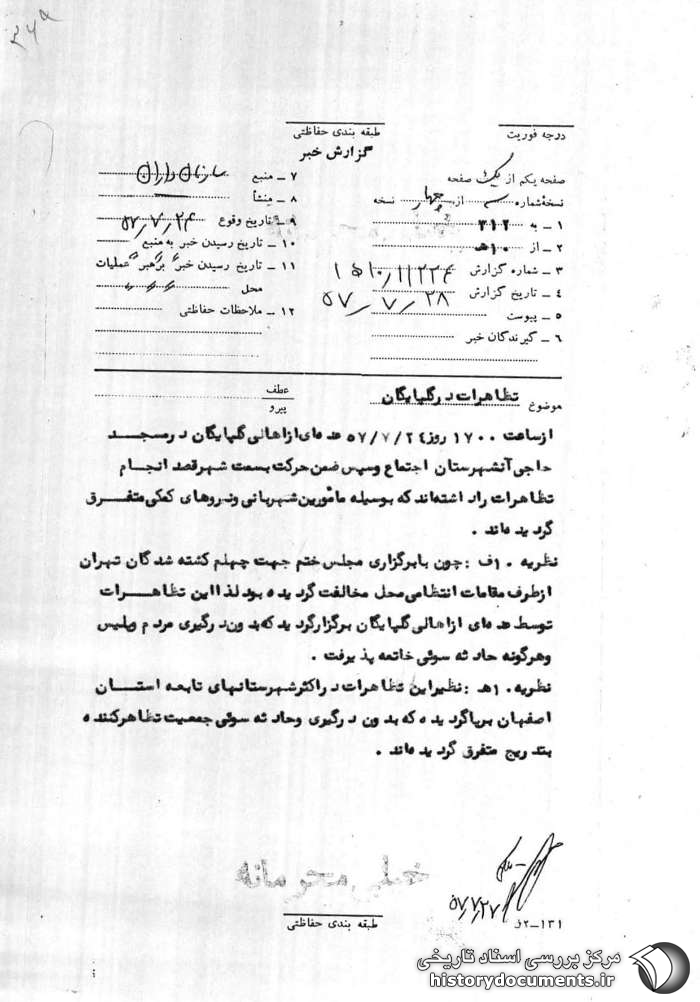 ۳۶۹
درجه فوریت
طبقه بندی حفاظتی
گزارش خبر
صفحه یکم از یک صفحه
نسخهٔ شماره از چهار نسخه
۱ ـ به ۳۱۲
۲ ـ از ۱۰هـ
۳ ـ شماره گزارش
۴ ـ تاریخ گزارش ۵۷/۷/۲۸
۵ ـ پیوست
۶ ـ گیرندگان خبر
۷ ـ منبع
۸ ـ منشأ
۹ ـ تاریخ وقوع ۵۷/۷/۲۴
۱۰ ـ تاریخ رسیدن خبر به منبع
۱۱ ـ تاریخ رسیدن خبر برهبر عملیات
محل
۱۲ ـ ملاحظات حفاظتی
موضوع تظاهرات در گلپایگان
عطف
پیرو
از ساعت ۱۷۰۰ روز ۵۷/۷/۲۴ عده‌ای از اهالی گلپایگان در مسجد
حاجی آنشهرستان اجتماع و سپس ضمن حرکت بسمت شهر قصد انجام
تظاهرات را داشته‌اند که بوسیله مأمورین شهربانی و نیروهای کمکی متفرق
گردیده‌اند .
نظریه ۱۰ف : چون با برگزاری مجلس ختم جهت چهلم کشته شدگان تهران
از طرف مقامات انتظامی محل مخالفت گردیده بود لذا این تظاهرات
توسط عده‌ای از اهالی گلپایگان برگزار گردید که بدون درگیری مردم و پلیس
و هرگونه حادثه سوئی خاتمه پذیرفت .
نظریه ۱۰هـ : نظیر این تظاهرات در اکثر شهرستانهای تابعه استان
اصفهان برپا گردیده که بدون درگیری و حادثه سوئی جمعیت تظاهرکننده
بتدریج متفرق گردیده‌اند .
خیلی محرمانه
۵۷/۷/۲۷
طبقه بندی حفاظتی
۱۳۱ـ۲ف
مرکز بررسی اسناد تاریخی
historydocuments.ir